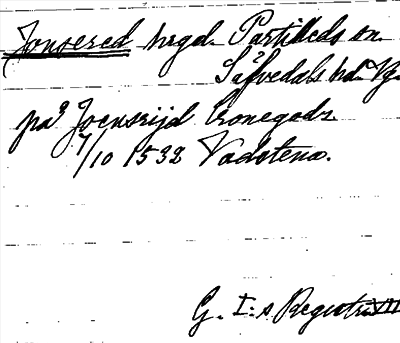 Jonsered hrgd. Partilleds sn.
Säfvedals hd. Vg.
på Joensrijd Cronegodz
7/10 1532 Vadstena.
G. I:s Registr